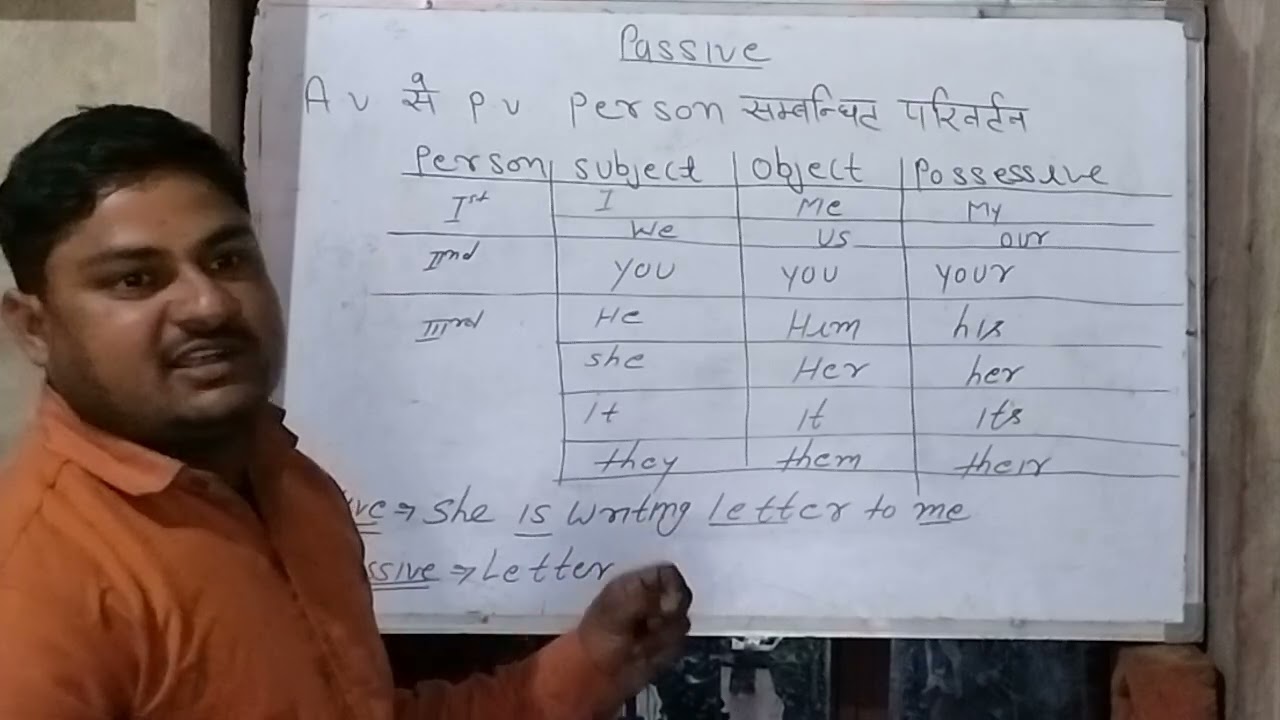 Passive
A V से P V Person सम्बन्धित परिवर्तन
Person Subject Object Possessive
Ist I Me My
We us our
IInd you you your
IIIrd He Him his
she Her her
It It Its
they them their
ive → She is writing letter to me
ssive → Letter